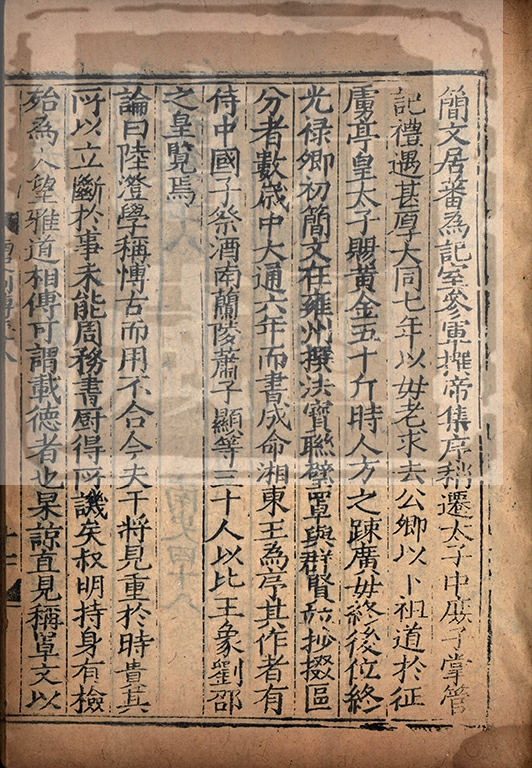 簡文居蕃為記室參軍撰帝集序稍遷太子中庶子掌管
記禮遇甚厚大同七年以毋老求去公卿以下祖道於征
虜亭皇太子賜黃金五十斤時人方之踈廣毋終後位終
光祿卿初簡文在雍州撰法寳聯璧罩與群賢並抄掇區
分者數歲中大通六年而書成命湘東王為序其作者有
侍中國子祭酒南蘭陵蕭子顯等三十人以比王象劉邵
之皇覽焉
論曰陸澄學稱愽古而用不合今夫干將見重於時貴其
所以立斷於事未能周務書厨得所譏矣叔明持身有檢
殆為人望雅道相傳可謂載德者也杲諒直見稱罩文以